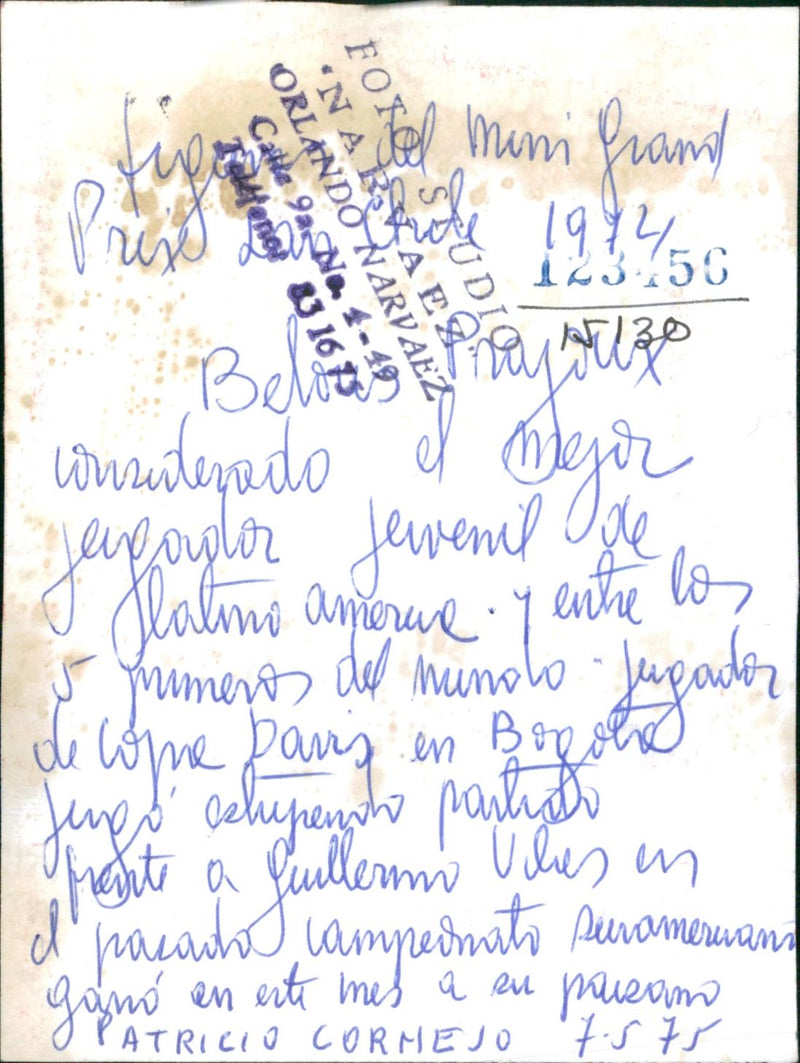 Figuras del Mini Grand
Prix Lan Chile 1974
123456
15130
FOTO STUDIO
"NARVAEZ"
ORLANDO NARVAEZ
Calle 9a. No. 4-49
Teléfono 83 16 73
Belus Prajoux
considerado el mejor
jugador juvenil de
latino america. y entre los
5 primeros del mundo - jugador
de copa Davis en Bogotá
jugó estupendo partido
frente a Guillermo Vilas en
el pasado campeonato suramericano
ganó en este mes a su paisano
PATRICIO CORNEJO 7-5 75